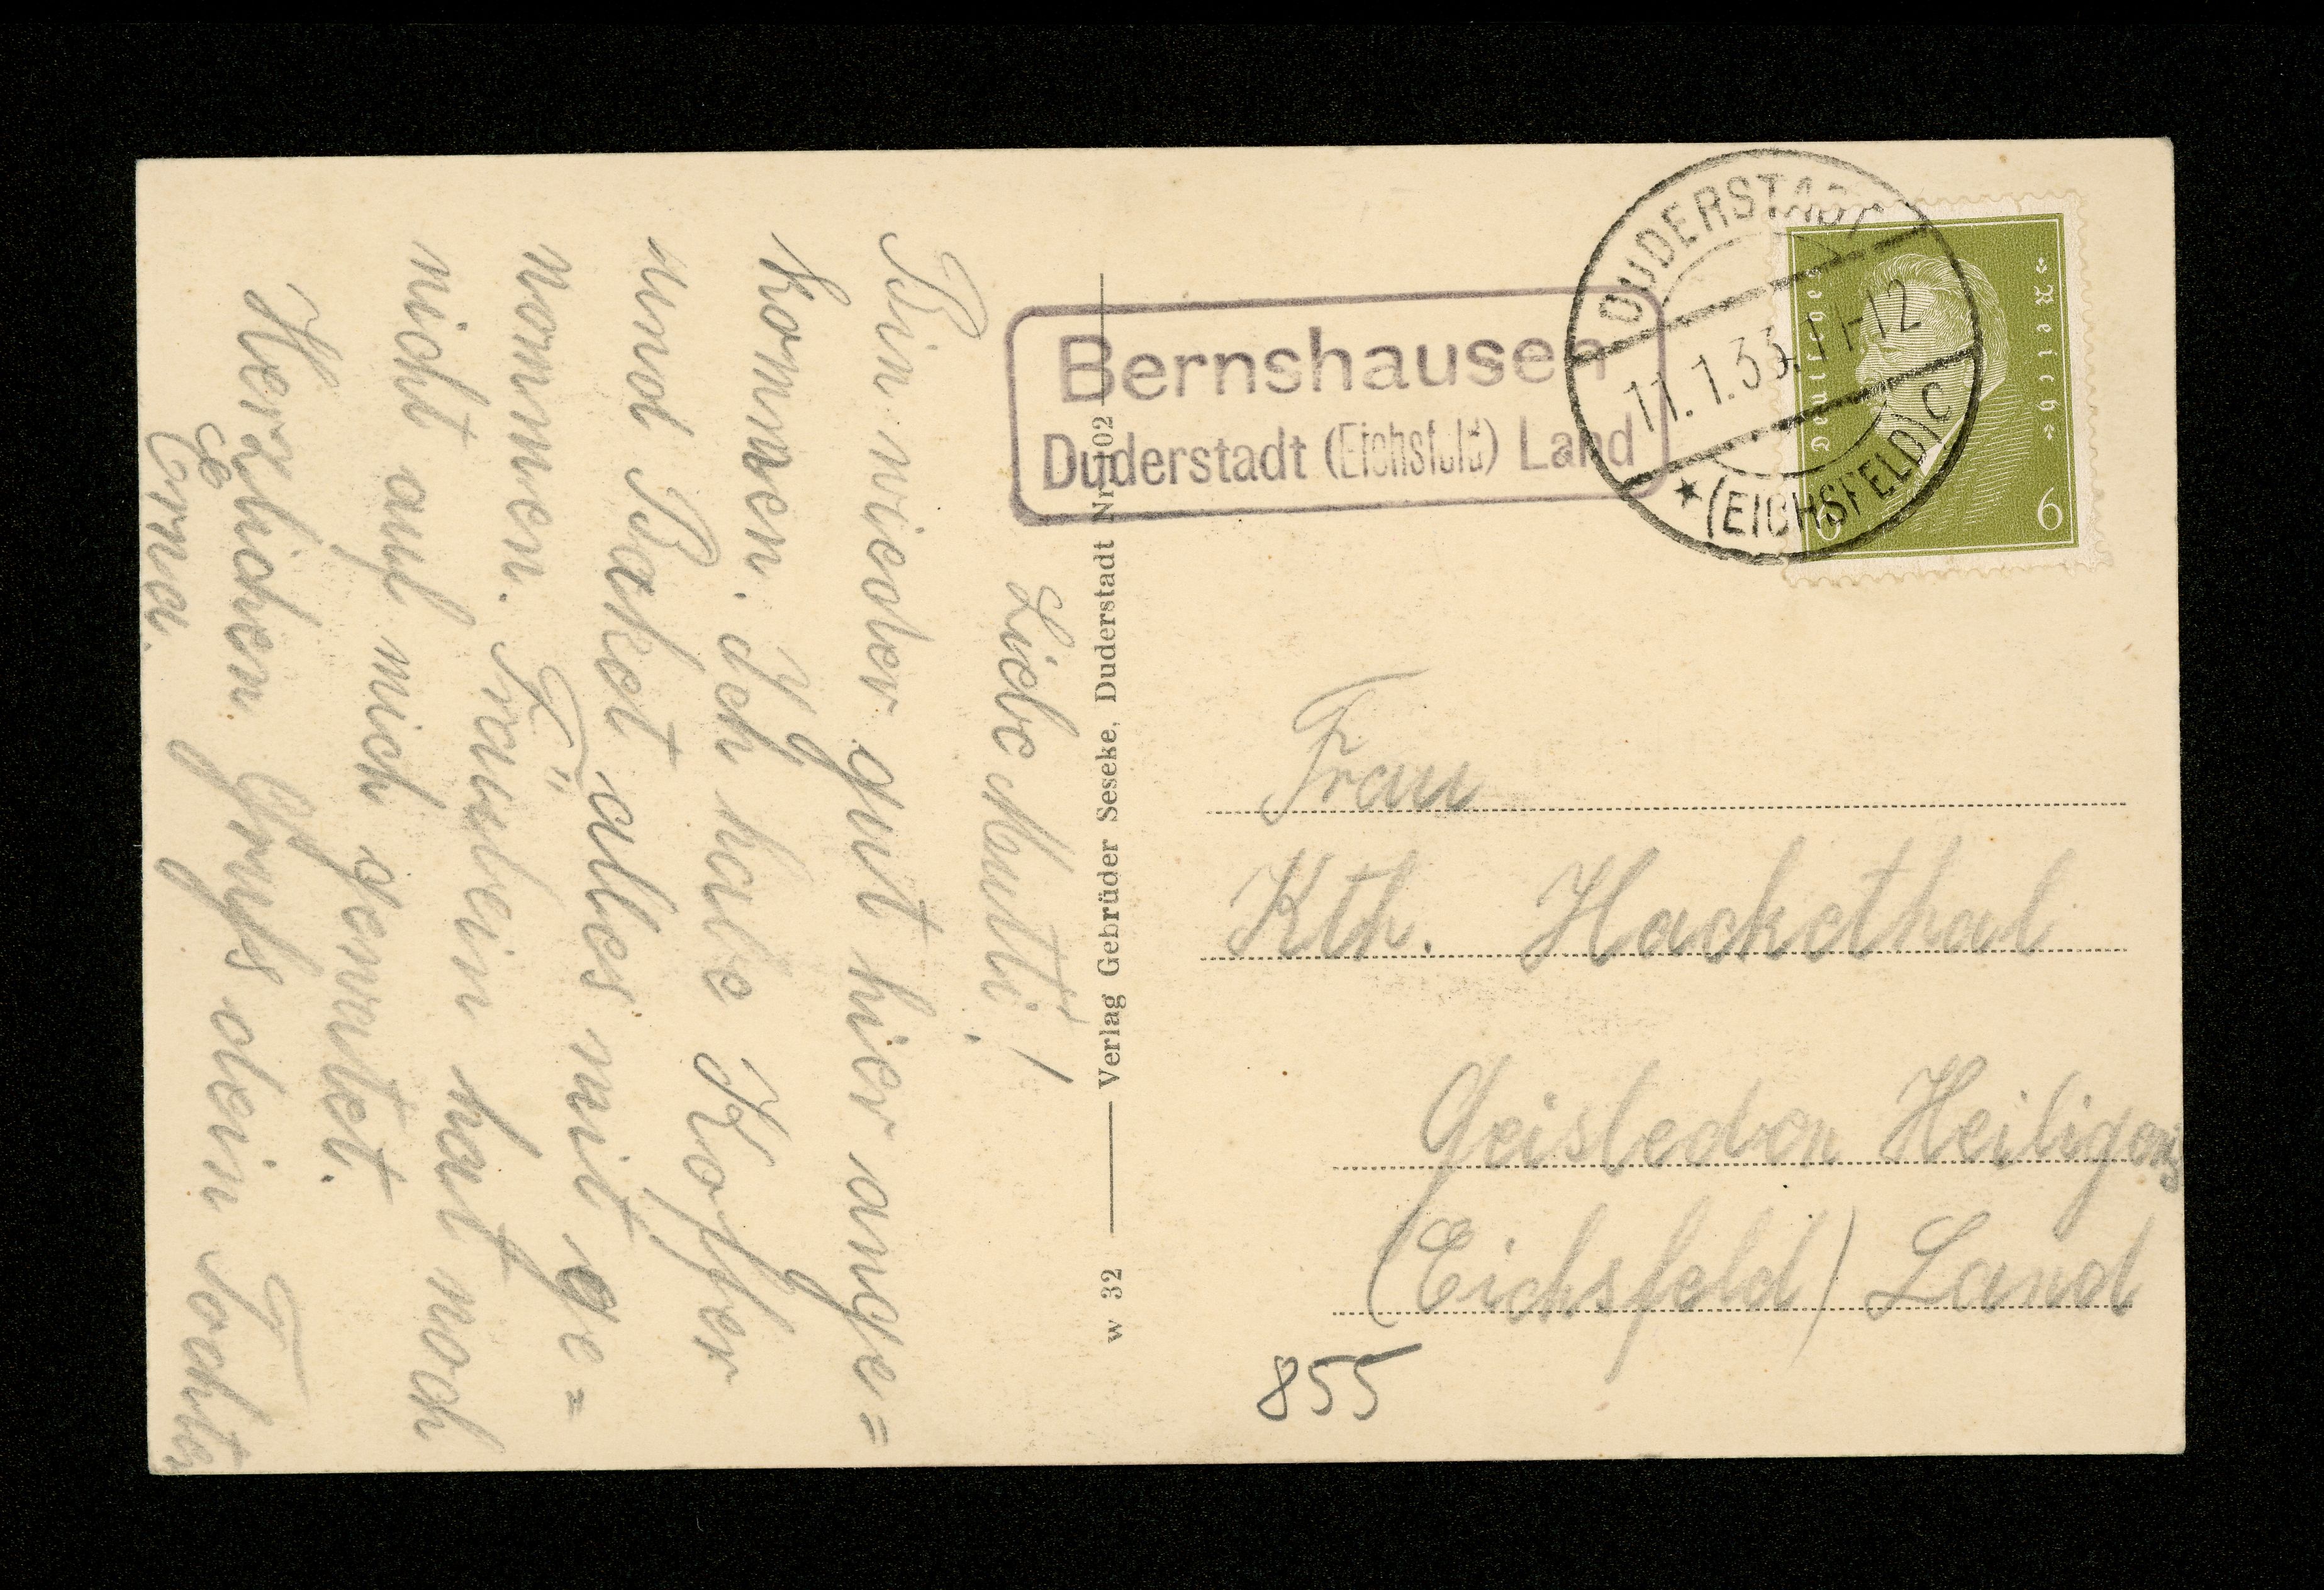 Liebe Mutti!
Bin wieder gut hier ange=
kommen. Ich habe Koffer
und Paket alles mit ge=
nommen. Fräulein hat noch
nicht auf mich gewartet.
Herzlichen Gruß dein Tochter
Erna.
w 32 Verlag Gebrüder Seseke, Duderstadt Nr. 1702
Bernshausen
Duderstadt (Eichsfeld) Land
DUDERSTADT
11.1.33.11-12
(EICHSFELD) C
Deutsches Reich
6 6
Frau
Kth. Hackethal
Geisleden Heiligens
(Eichsfeld) Land
855